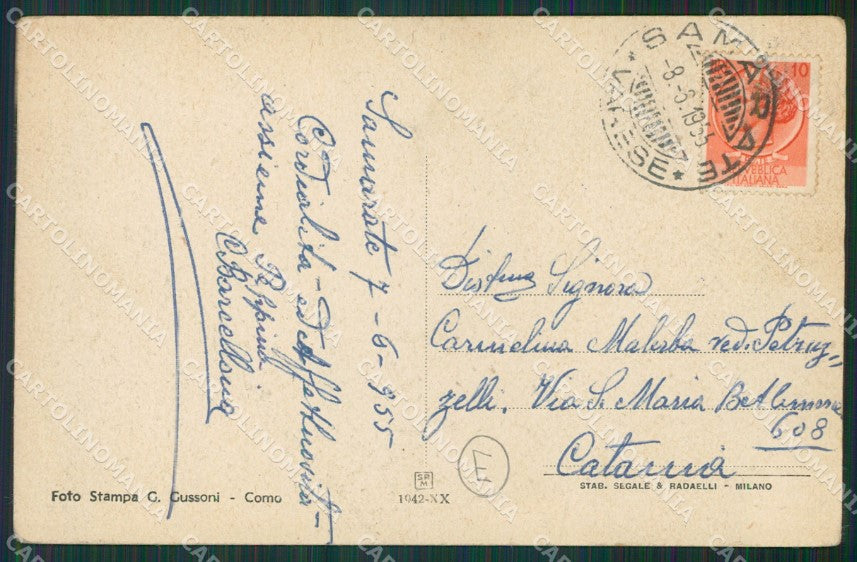 Samarate 7-6-955
Cordialità ed Affettuosità
assieme Peppina
Barcellona
SAMARATE
* VARESE *
-8-6.1955
10
REPUBBLICA
ITALIANA
Signora
Carmelina Malerba ved. Petruz=
zelli. Via S. Maria Betlemme
608
Catania
Foto Stampa G. Gussoni - Como
1942-XX
STAB. SEGALE & RADAELLI - MILANO
CARTOLINOMANIA